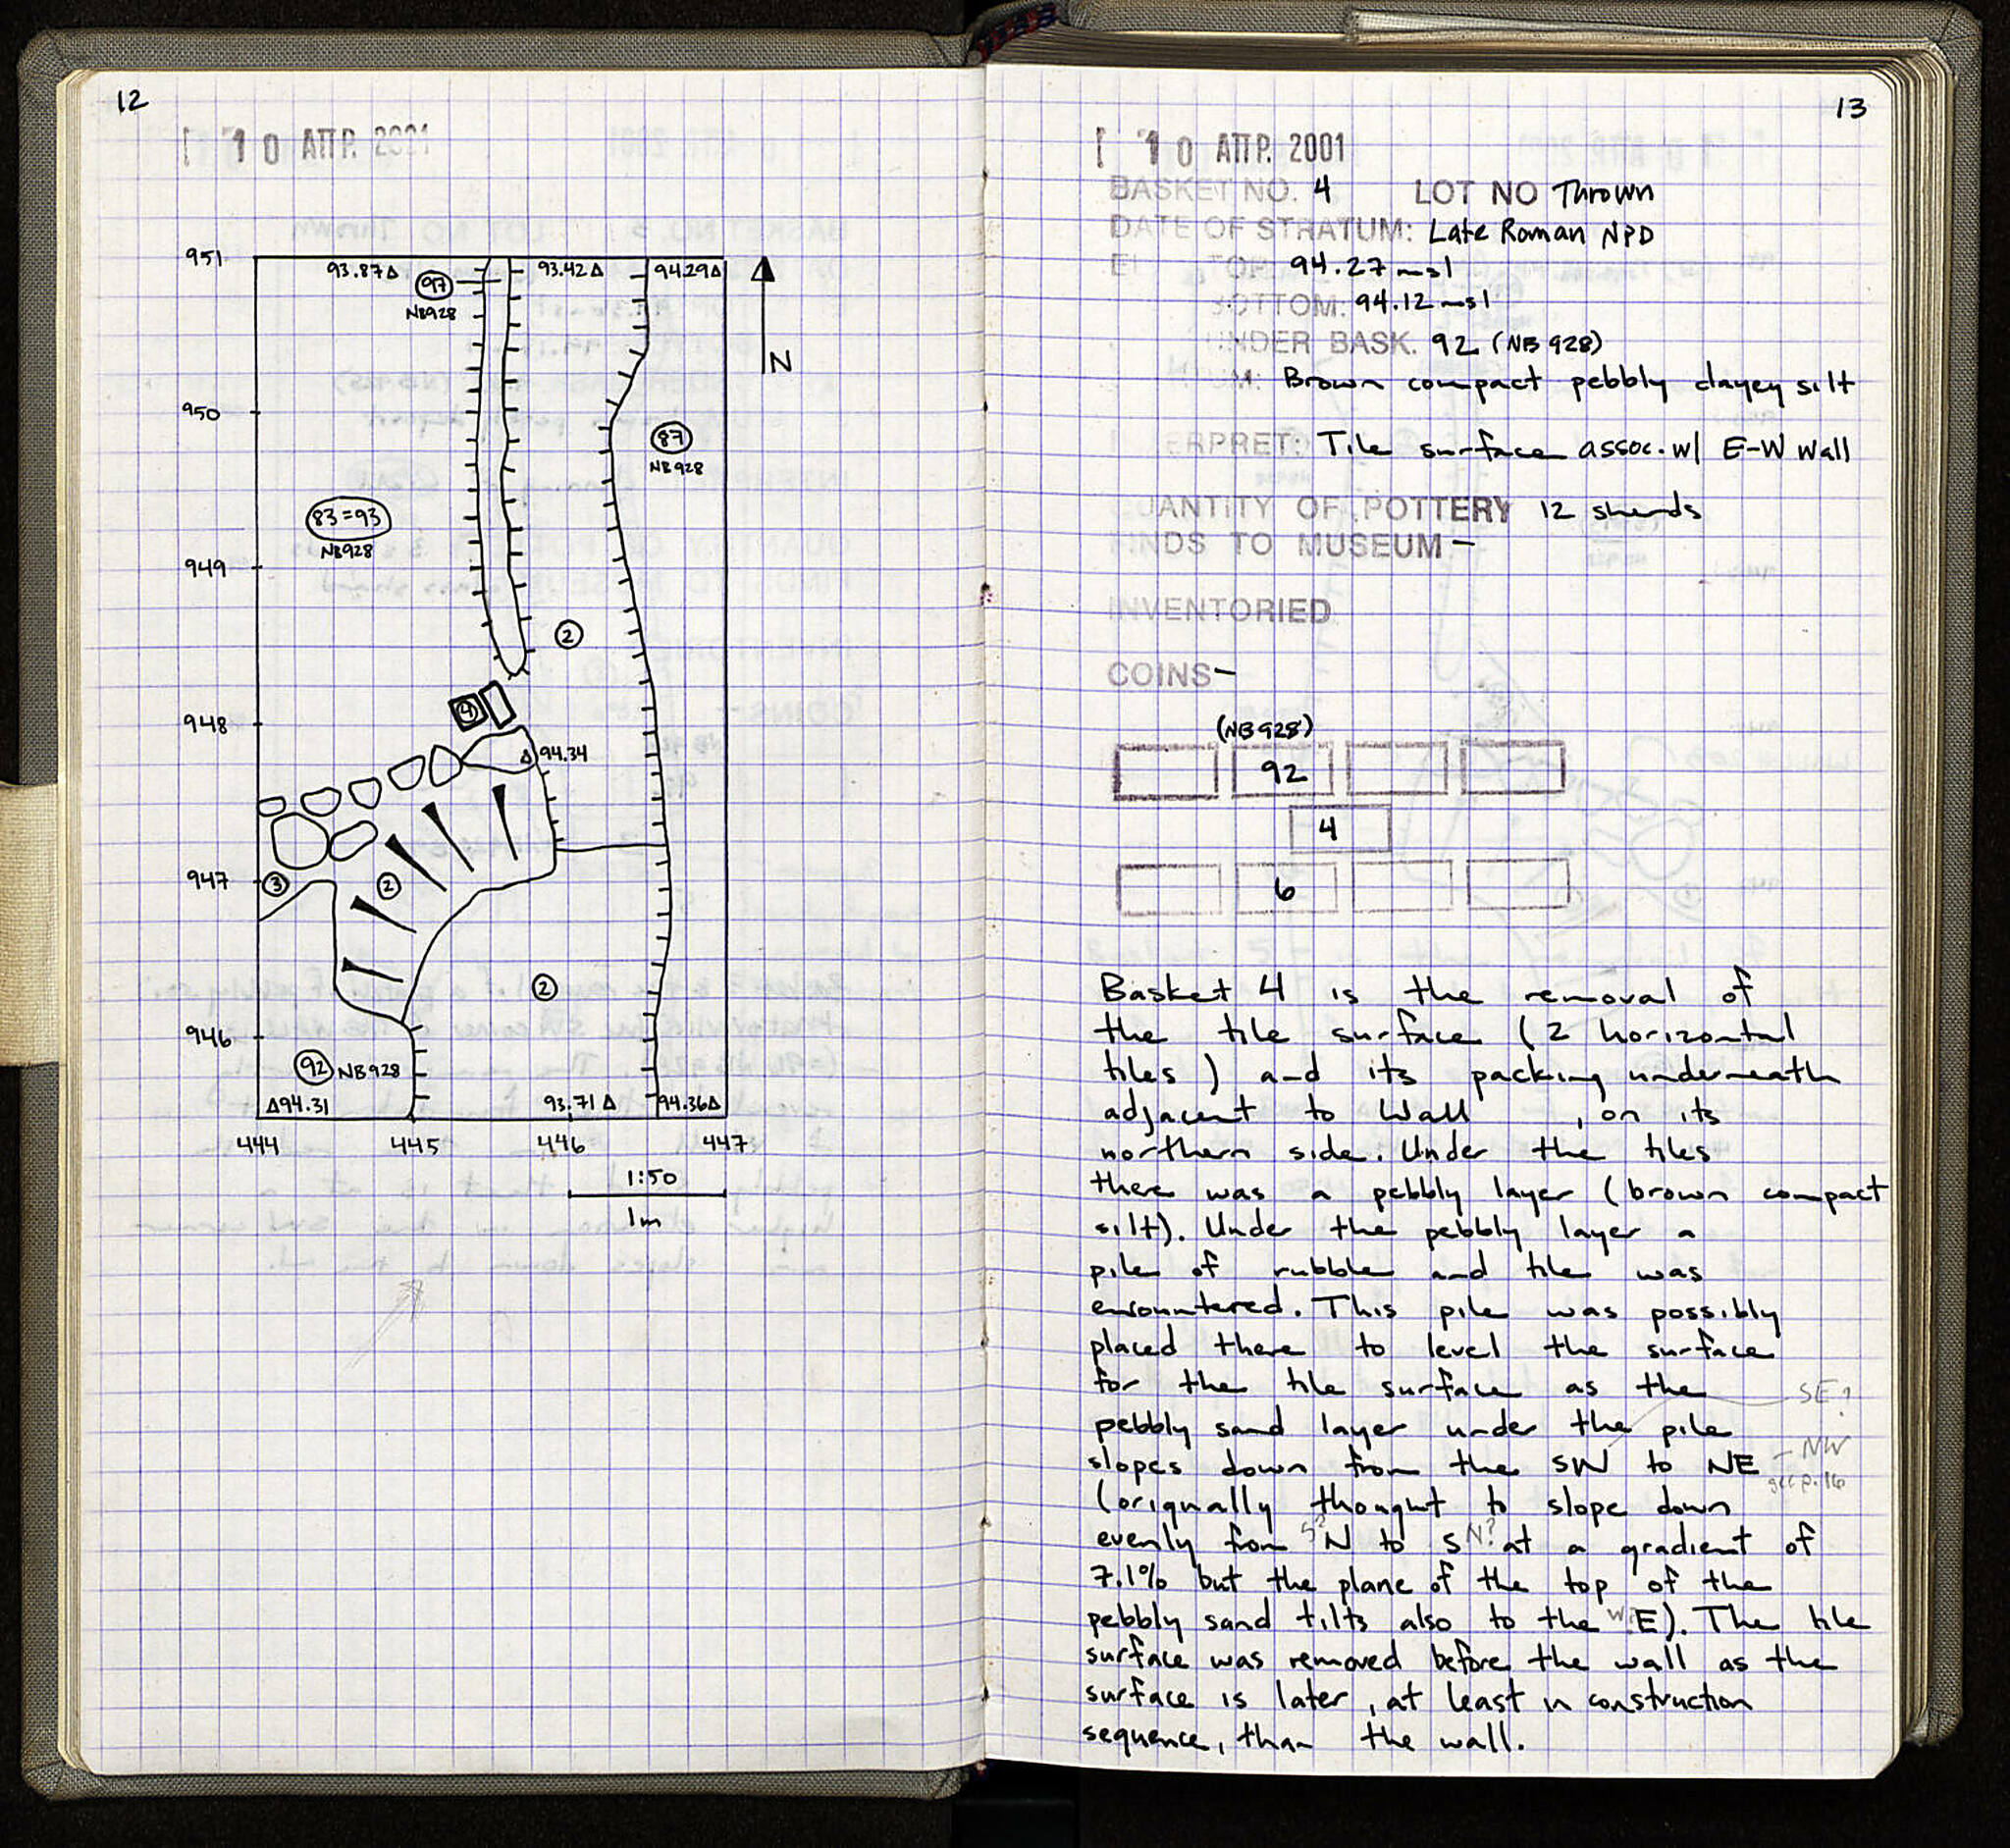 12
10 ΑΠΡ. 2001
951
93.87Δ
93.42Δ
94.29Δ
97
NB928
N
950
87
NB928
83=93
NB928
949
2
948
4
Δ94.34
947
3
2
946
2
92 NB928
Δ94.31
93.71Δ
94.36Δ
444 445 446 447
1:50
1m
13
10 ΑΠΡ. 2001
BASKET NO. 4 LOT NO Thrown
DATE OF STRATUM: Late Roman NPD
El TOP 94.27 msl
BOTTOM: 94.12 msl
UNDER BASK. 92 (NB 928)
UM: Brown compact pebbly clayey silt
ERPRET: Tile surface assoc. w/ E-W Wall
QUANTITY OF POTTERY 12 sherds
FINDS TO MUSEUM –
INVENTORIED
COINS –
(NB928)
92
4
6
Basket 4 is the removal of
the tile surface (2 horizontal
tiles) and its packing underneath
adjacent to Wall , on its
northern side. Under the tiles
there was a pebbly layer (brown compact
silt). Under the pebbly layer a
pile of rubble and tile was
encountered. This pile was possibly
placed there to level the surface
for the tile surface as the SE?
pebbly sand layer under the pile
slopes down from the SW to NE – NW
see p.16
(orignally thought to slope down
evenly from S? N to S N? at a gradient of
7.1% but the plane of the top of the
pebbly sand tilts also to the W? E). The tile
surface was removed before the wall as the
surface is later, at least in construction
sequence, than the wall.